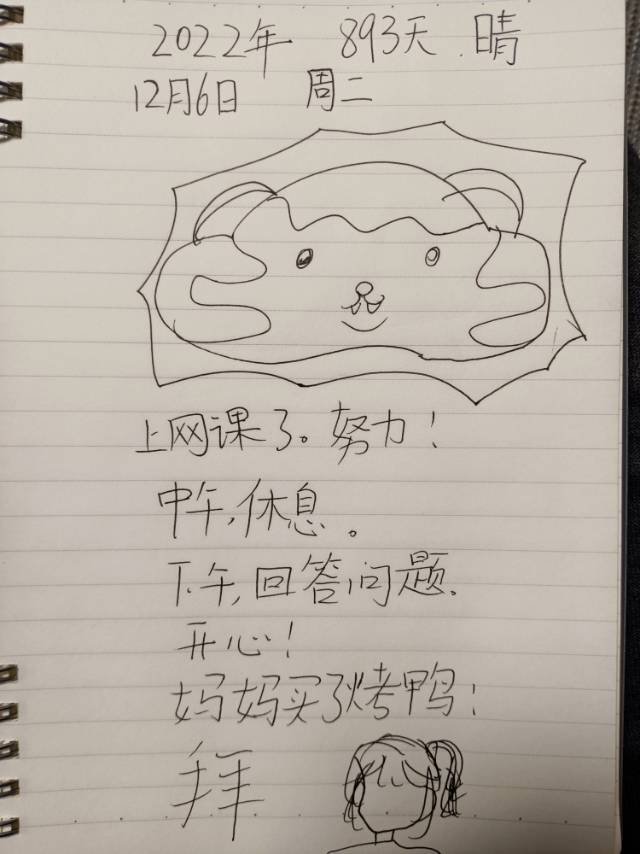 2022年 893天 晴
12月6日 周二
上网课了。努力！
中午，休息。
下午，回答问题.
开心！
妈妈买了烤鸭！
拜